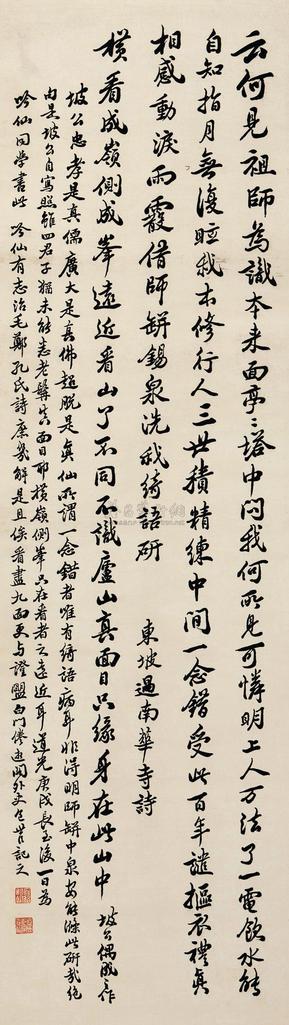 云何見祖師為識本來面亭〻塔中問我何所見可憐明上人萬法了一電飲水能
自知指月無復眩我本修行人三世積精練中間一念錯受此百年譴摳衣禮真
相感動淚雨霰借師錫泉洗我綺語硯
東坡過南華寺詩
橫看成嶺側成峯遠近看山了不同不識廬山真面目只緣身在此山中
坡公偶成之作
坡公忠孝是真儒廣大是真佛超脫是真仙所謂一念錯者唯有綺語病耳非得明師缾中泉安能滌此硯哉絕
句是坡公自寫照雖四君子猶未能悉老髯真面目耶橫嶺側峯只在看者之遠近耳道光庚戌長至後一日為
吟仙同學書此 吟仙有志治毛鄭孔氏詩庶幾解是且俟看盡九面更與證盟